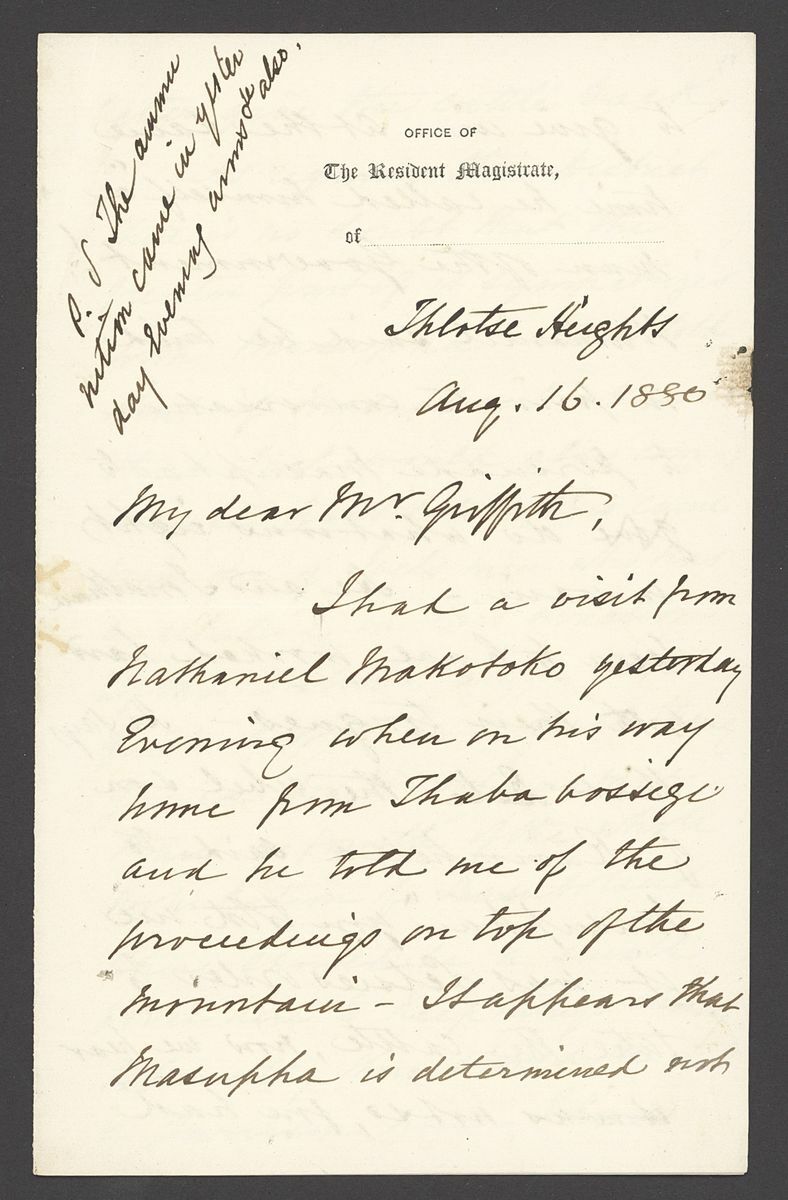 P. S The ammu
nition came in yester
day Evening arms & also.
OFFICE OF
The Resident Magistrate,
of
Thlotse Heights
Aug. 16. 1880
My dear Mr. Griffith,
I had a visit from
Nathaniel Makotoko yesterday
Evening when on his way
home from Thaba bossigo
and he told me of the
proceedings on top of the
mountain – It appears that
Masupha is determined not